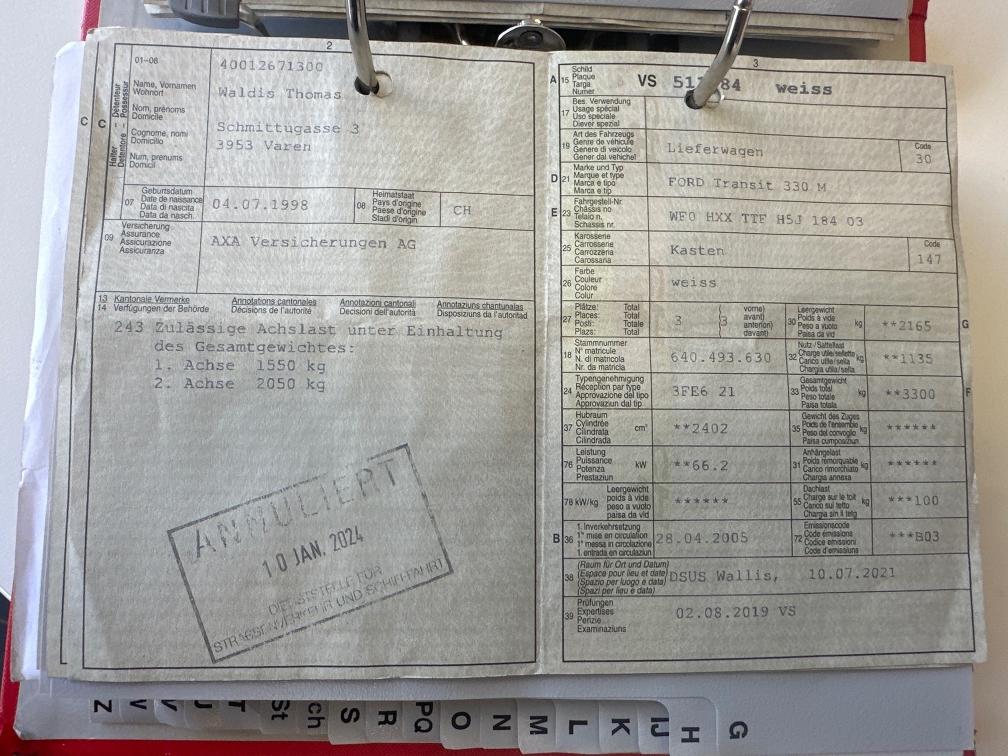 2
C
C
Halter – Détenteur
Detentore – Possessur
01–06
40012671300
Name, Vornamen
Wohnort
Waldis Thomas
Nom, prénoms
Domicile
Cognome, nomi
Domicilio
Schmittugasse 3
3953 Varen
Num, prenums
Domicil
07
Geburtsdatum
Date de naissance
Data di nascita
Data da nasch.
04.07.1998
08
Heimatstaat
Pays d'origine
Paese d'origine
Stadi d'origin
CH
09
Versicherung
Assurance
Assicurazione
Assicuranza
AXA Versicherungen AG
13 Kantonale Vermerke
14 Verfügungen der Behörde
Annotations cantonales
Décisions de l'autorité
Annotazioni cantonali
Decisioni dell'autorità
Annotaziuns chantunalas
Disposiziuns da l'autoritad
243 Zulässige Achslast unter Einhaltung
des Gesamtgewichtes:
1. Achse 1550 kg
2. Achse 2050 kg
ANNULIERT
10 JAN. 2024
DIENSTSTELLE FÜR
STRASSENVERKEHR UND SCHIFFFAHRT
3
A 15
Schild
Plaque
Targa
Numer
VS 84 weiss
17
Bes. Verwendung
Usage spécial
Uso speciale
Diever spezial
19
Art des Fahrzeugs
Genre de véhicule
Genere di veicolo
Gener dal vehichel
Lieferwagen
Code
30
D 21
Marke und Typ
Marque et type
Marca e tipo
Marca e tip
FORD Transit 330 M
E 23
Fahrgestell-Nr.
Châssis no
Telaio n.
Schassis nr.
WF0 HXX TTF H5J 184 03
25
Karosserie
Carrosserie
Carrozzeria
Carossaria
Kasten
Code
147
26
Farbe
Couleur
Colore
Colur
weiss
27
Plätze: Total
Places: Total
Posti: Totale
Plazs: Total
3
(3
vorne)
avant)
anteriori)
davant)
30
Leergewicht
Poids à vide
Peso a vuoto
Paisa da vid
kg
**2165
G
18
Stammnummer
N° matricule
N. di matricola
Nr. da matricla
640.493.630
32
Nutz-/Sattellast
Charge utile/sellette
Carico utile/sella
Chargia utila/sella
kg
**1135
24
Typengenehmigung
Réception par type
Approvazione del tipo
Approvaziun dal tip
3FE6 21
33
Gesamtgewicht
Poids total
Peso totale
Paisa totala
kg
**3300
F
37
Hubraum
Cylindrée
Cilindrata
Cilindrada
cm³
**2402
35
Gewicht des Zuges
Poids de l'ensemble
Peso del convoglio
Paisa cumposiziun
kg
******
76
Leistung
Puissance
Potenza
Prestaziun
kW
**66.2
31
Anhängelast
Poids remorquable
Carico rimorchiato
Chargia annexa
kg
******
78 kW/kg
Leergewicht
poids à vide
peso a vuoto
paisa da vid
******
55
Dachlast
Charge sur le toit
Carico sul tetto
Chargia sin il tetg
kg
***100
B 36
1. Inverkehrsetzung
1re mise en circulation
1a messa in circolazione
1. entrada en circulaziun
28.04.2005
72
Emissionscode
Code émissions
Codice emissioni
Code d'emissiuns
***B03
38
(Raum für Ort und Datum)
(Espace pour lieu et date)
(Spazio per luogo e data)
(Spazi per lieu e data)
DSUS Wallis, 10.07.2021
39
Prüfungen
Expertises
Perizie
Examinaziuns
02.08.2019 VS
Z
V
V
U
T
St
ch
S
R
PQ
O
N
M
L
K
IJ
H
G